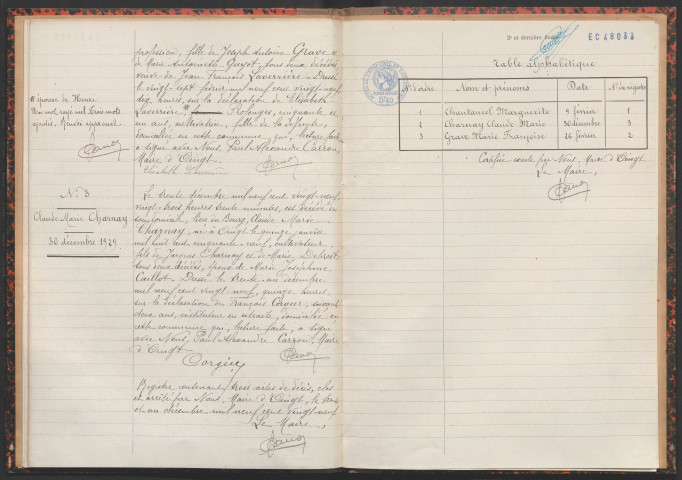 profession, fille de Joseph Antoine Grave et
de Marie Antoinette Guyot, tous deux décédés
veuve de Jean François Laverrière. Dressé
le vingt-sept février mil neuf cent vingt-neuf
heures, sur la déclaration de Elisabeth
Laverrière Prolonges, cinquante et
un ans, cultivateur, fille de la défunte,
domiciliée en cette commune, qui, lecture faite
a signé avec Nous, Paul Alexandre Carron,
Maire d'Oingt.
épouse de Henri
Un mot rayé nul. Trois mots
ajoutés.
N° 3
Claude Marie Charnay
30 décembre 1929
Le trente décembre mil neuf cent vingt-neuf,
vingt-trois heures trente minutes, est décédé en
son domicile, lieu du Bourg, Claude Marie
Charnay, né à Oingt le quinze janvier
mil huit cent cinquante-neuf, cultivateur,
fils de Jacques Charnay et de Marie
tous deux décédés, époux de Marie Joséphine
Caillot. Dressé le trente-un décembre
mil neuf cent vingt neuf, quinze heures
sur la déclaration de François Corgier, cinquante
deux ans, instituteur en retraite, domicilié en
cette commune qui, lecture faite, a signé
avec Nous, Paul Alexandre Carron, Maire
d'Oingt.
Registre contenant trois actes de décès, clos
et arrêté par Nous Maire d'Oingt, le trente
et un décembre mil neuf cent vingt-neuf
Le Maire,
2e et dernière feuille
EC48033
Table alphabétique
N° d'ordre Nom et prénoms Date N° du registre
1 Chantancel Marguerite 9 février 1
2 Charnay Claude Marie 30 décembre 3
3 Grave Marie Françoise 26 février 2
Certifiée exacte par Nous, Maire d'Oingt
Le Maire,